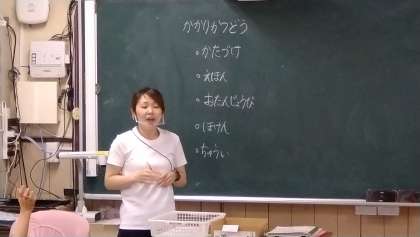 かかりかつどう
・かたづけ
・えほん
・おたんじょうび
・ほけん
・ちゅうい